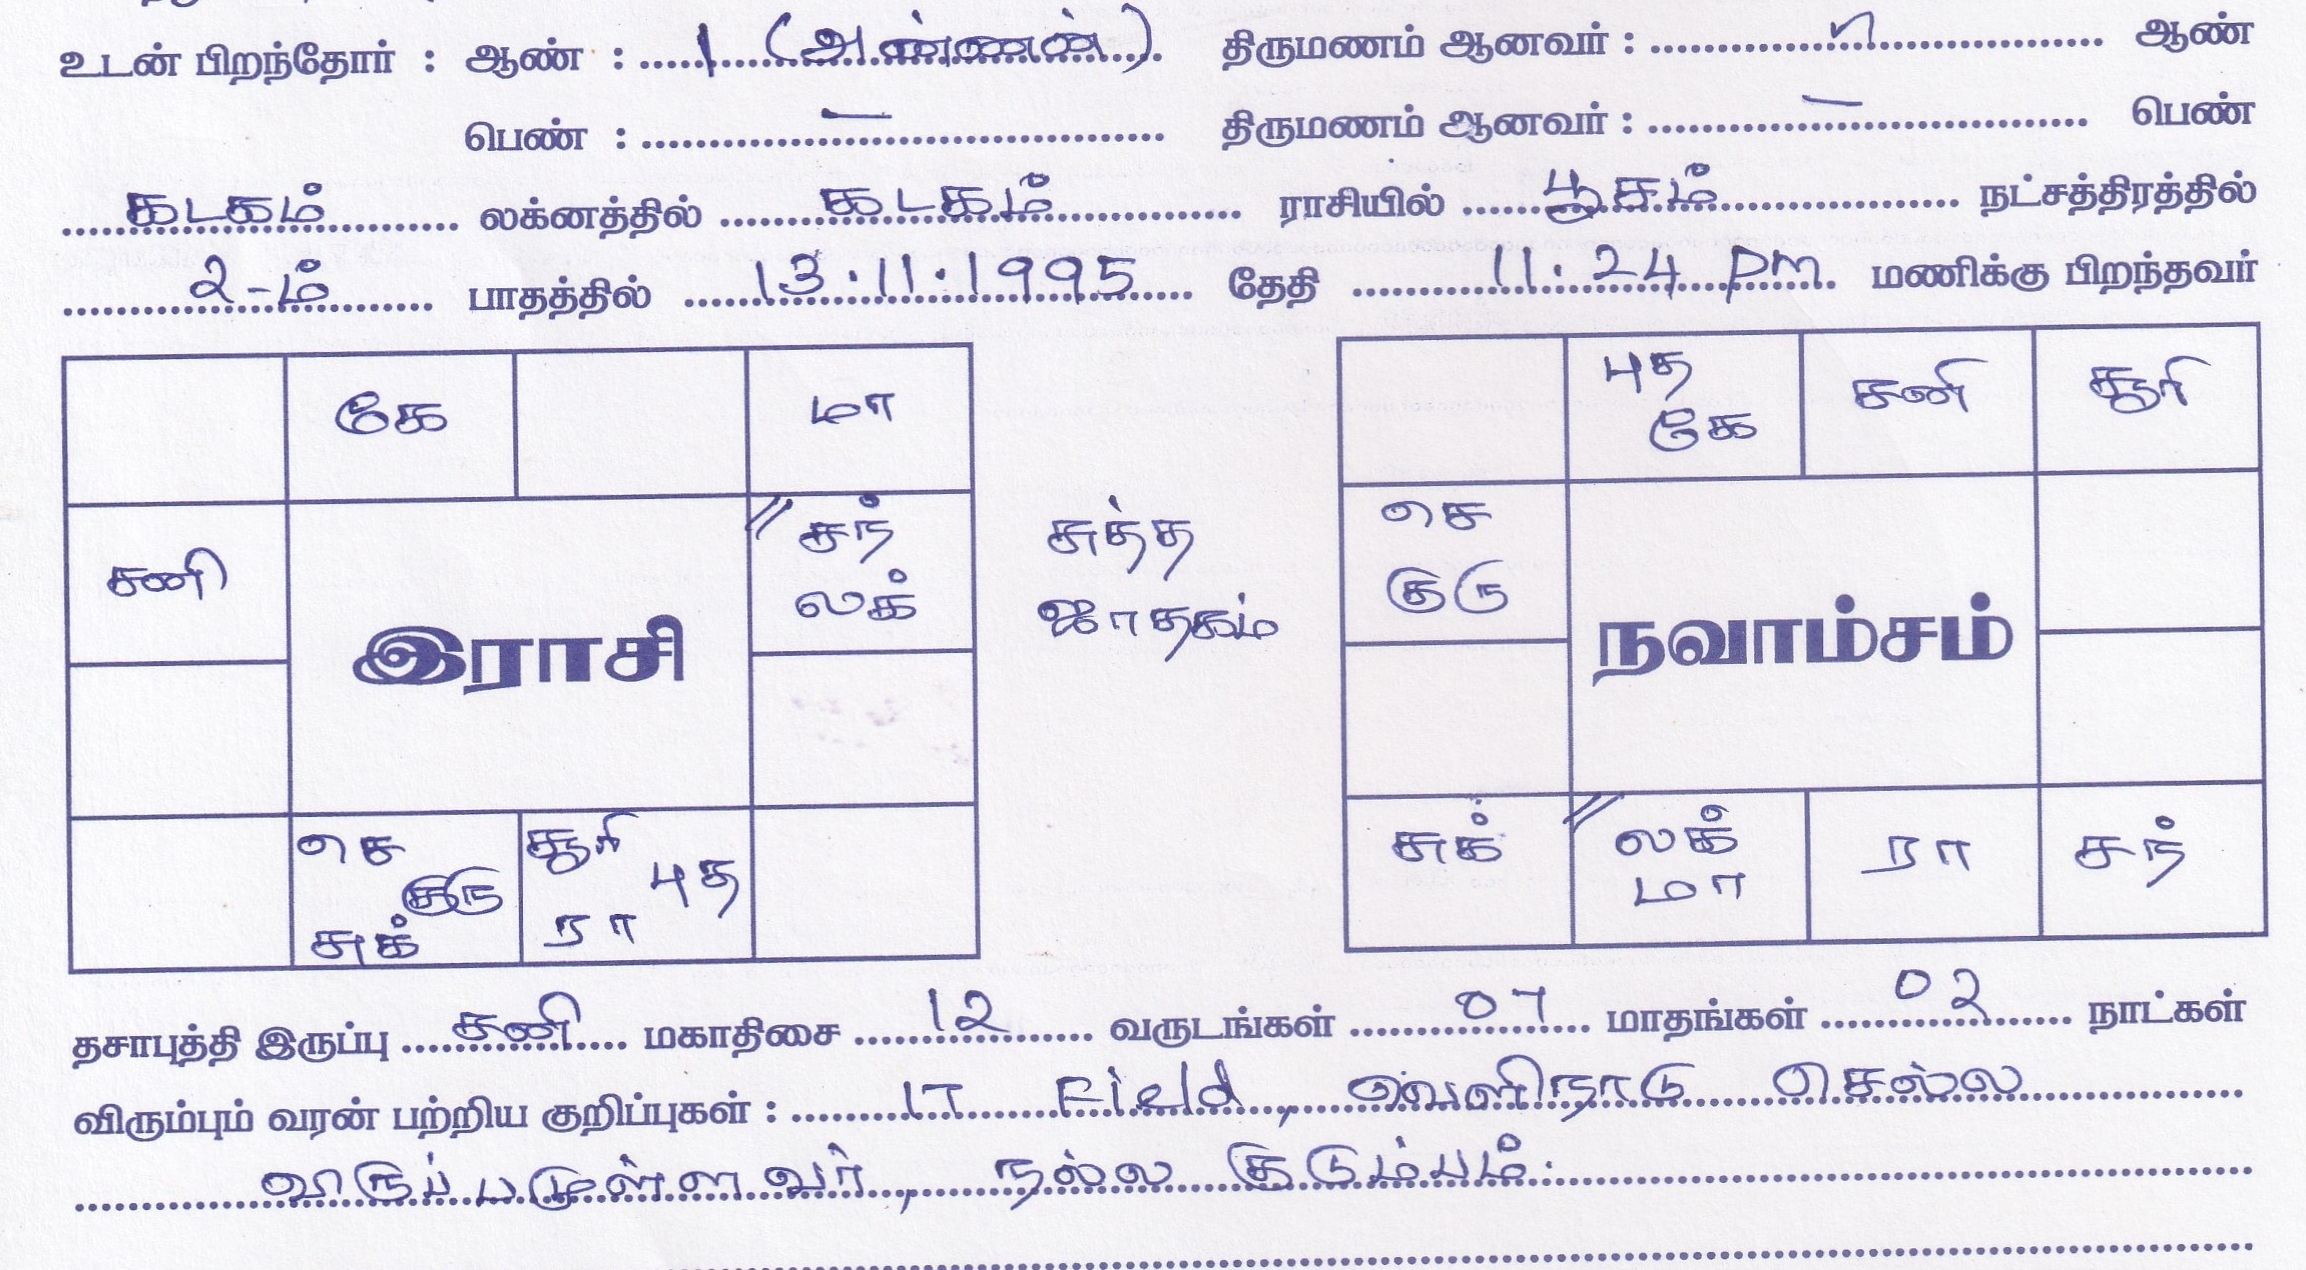 உடன் பிறந்தோர் : ஆண் : 1 (அண்ணன்) திருமணம் ஆனவர் : ஆண்
பெண் : — திருமணம் ஆனவர் : — பெண்
கடகம் லக்னத்தில் கடகம் ராசியில் பூசம் நட்சத்திரத்தில்
2-ம் பாதத்தில் 13.11.1995 தேதி 11.24 pm மணிக்கு பிறந்தவர்
கே மா
சனி சந் லக்
இராசி
செ குரு சுக் சூரி புத ரா
சுத்த
ஜாதகம்
புத கே சனி சூரி
செ குரு
நவாம்சம்
சுக் லக் மா ரா சந்
தசாபுத்தி இருப்பு சனி மகாதிசை 12 வருடங்கள் 07 மாதங்கள் 02 நாட்கள்
விரும்பும் வரன் பற்றிய குறிப்புகள் : IT Field, வெளிநாடு செல்ல
விருப்பமுள்ளவர், நல்ல குடும்பம்.